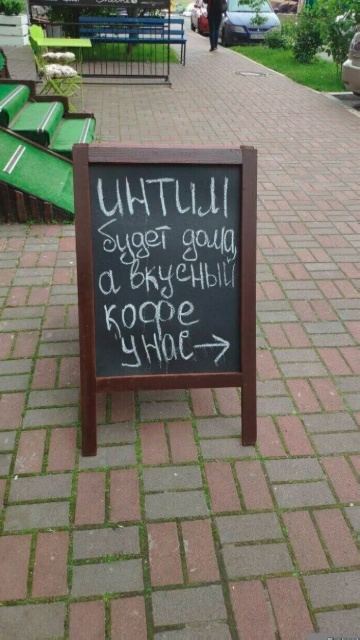 ИНТИМ
будет дома,
а вкусный
кофе
у нас →